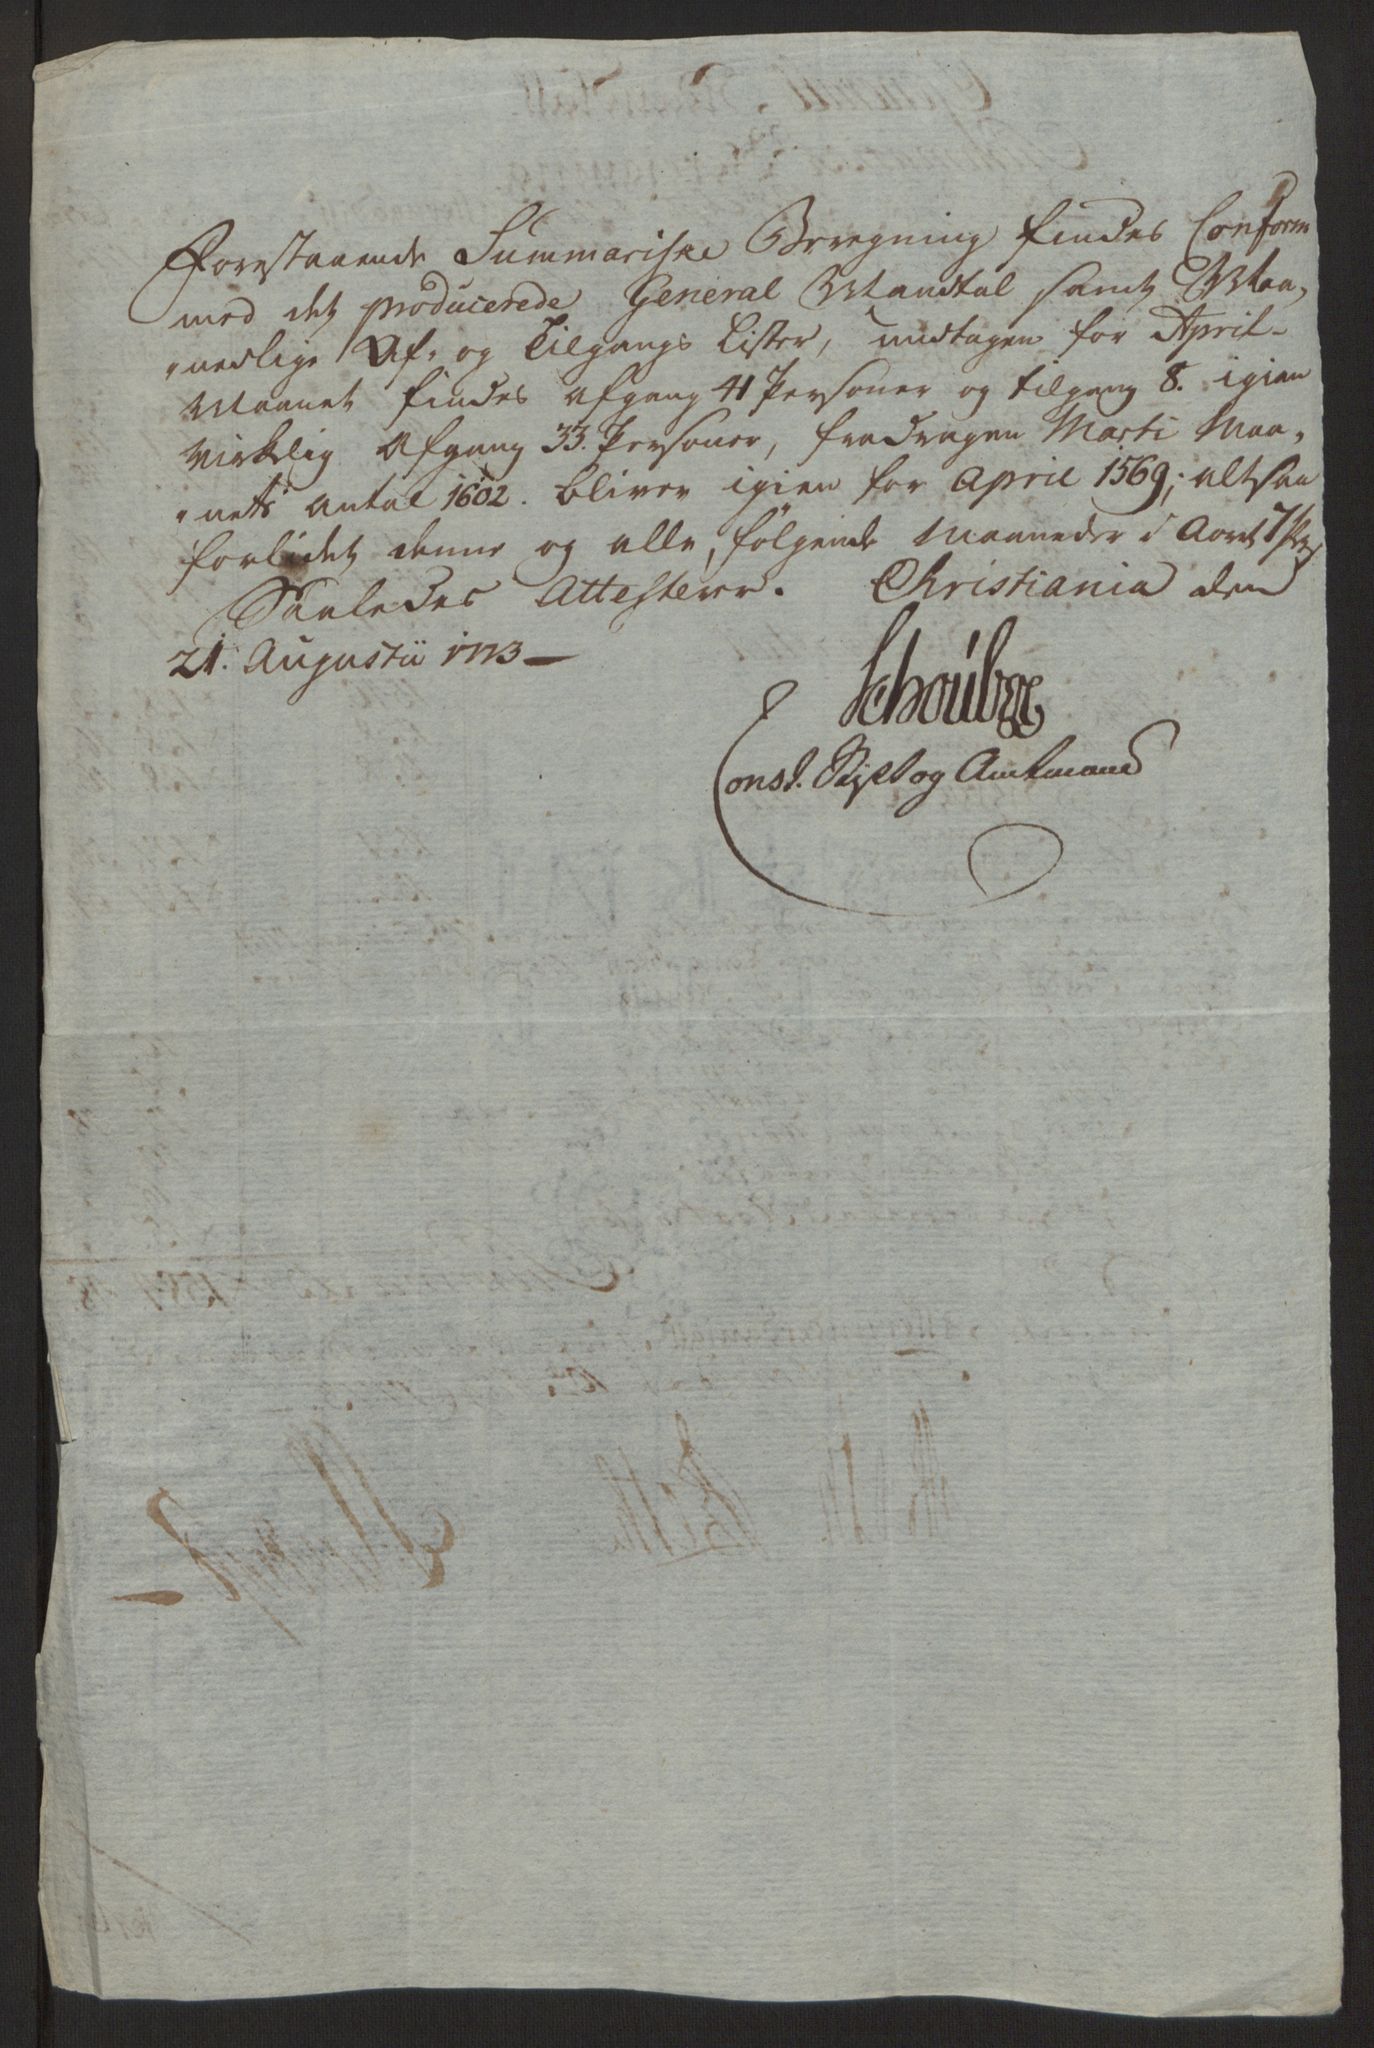 Forestaaende Summariske Beregning findes Conform
med det producerede General Mandtal samt Maa,
,nedlige Af, og Tilgangs Lister, undtagen for April-
Maanet findes Afgang 41 Personer og tilgang 8. igien
virkelig Afgang 33. Personer, fradragen Marti Maa,
,nets antal 1602. bliver igien for April 1569; altsaa
forlidet denne og alle følgende Maaneder i Aaret 7
Saaledes Attesterer. Christiania den
21. Augustii 1773
Schouboe
Const. Stift og Amtmand